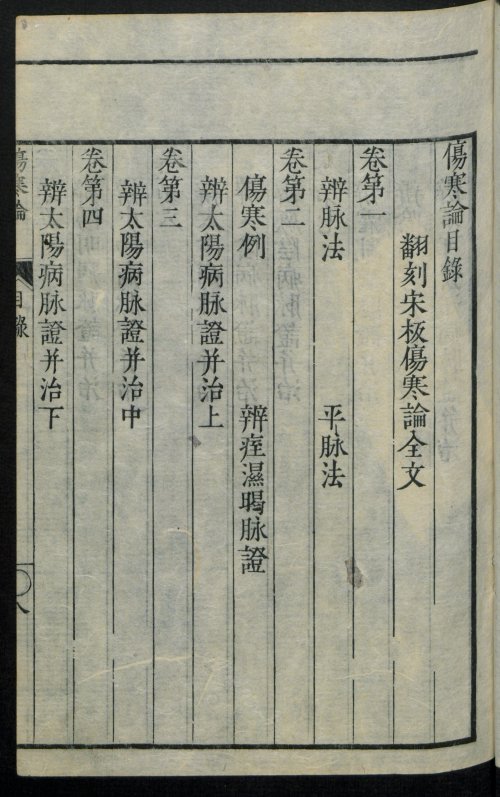 傷寒論目錄
翻刻宋板傷寒論全文
卷第一
辨脉法 平脉法
卷第二
傷寒例 辨痓濕暍脉證
辨太陽病脉證并治上
卷第三
辨太陽病脉證并治中
卷第四
辨太陽病脉證并治下
傷寒論 目錄 八